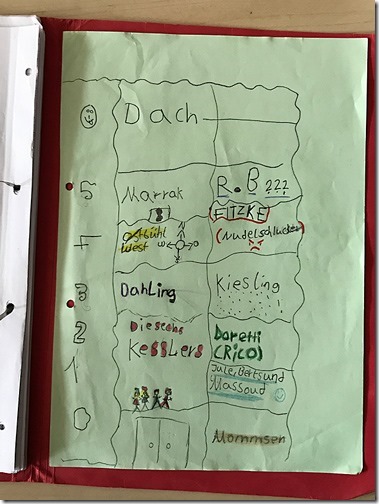 Dach
5
Marrak
R. B ???
FITZKE
4
Ostbühl
West
N
W O
S
(Nudelschlucker)
3
Dahling
Kiesling
2
Die sechs
Kesslers
Doretti
(Rico)
1
Jule, Berts und
Massoud
0
Mommsen